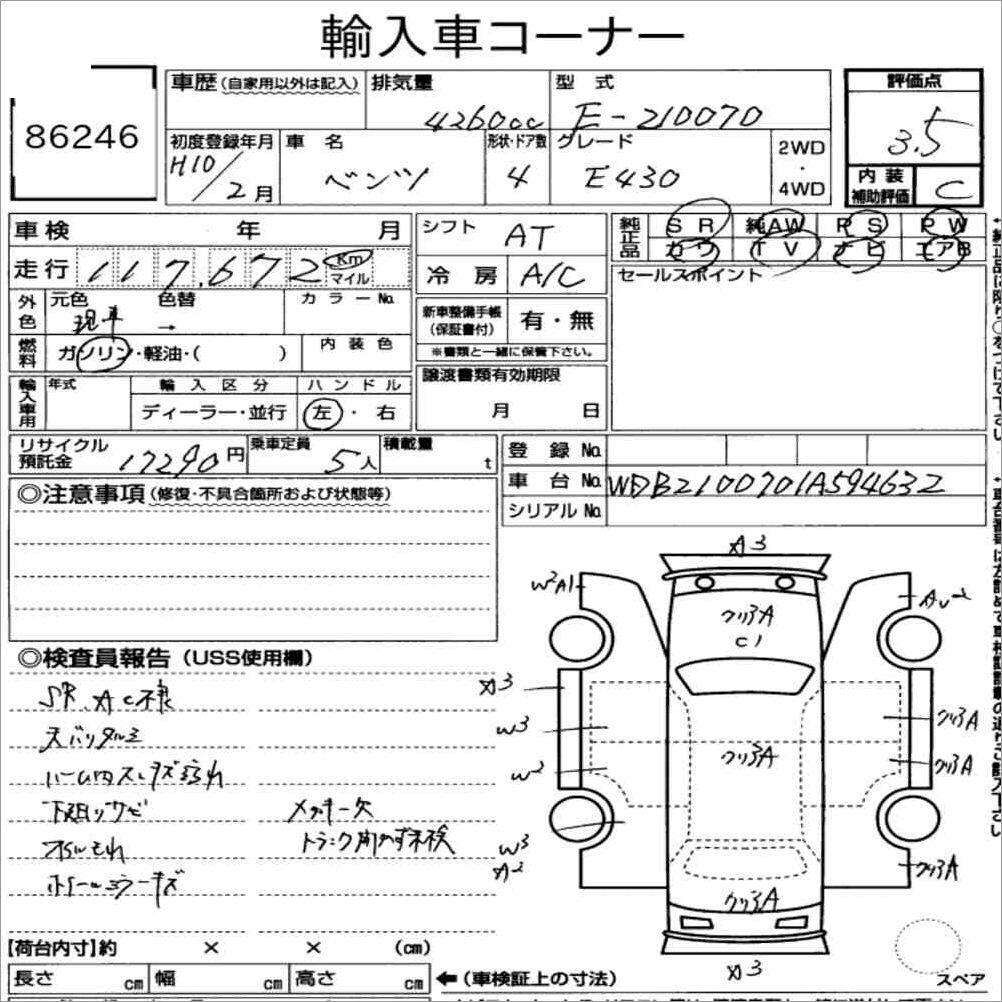 輸入車コーナー
86246
車歴 (自家用以外は記入) 排気量 4260cc 型式 E-210070
評価点 3.5
初度登録年月 H10/2月 車名 ベンツ 形状・ドア数 4 グレード E430 2WD・4WD
内装補助評価 C
車検 年 月 シフト AT 純正品 SR 純AW PS PW
カワ TV ナビ エアB
走行 117,672 Km マイル 冷房 A/C セールスポイント
外色 元色 現車 色替 → カラーNo.
新車整備手帳(保証書付) 有・無
※書類と一緒に保管下さい。
燃料 ガソリン・軽油・( ) 内装色
譲渡書類有効期限 月 日
輸入車用 年式 輸入区分 ディーラー・並行 ハンドル 左・右
リサイクル預託金 17290円 乗車定員 5人 積載量 t
登録No.
車台No. WDB2100701A594632
シリアルNo.
◎注意事項 (修復・不具合箇所および状態等)
◎検査員報告 (USS使用欄)
SR、AC不良
天バリタルミ
下廻りサビ
メッキー欠
オイルもれ
トランク開かず未検
A3
W2 A1
クリアA
C1
A3
W3
W2
クリアA
クリアA
クリアA
W3
A2
クリアA
クリアA
A3
スペア
【荷台内寸】約 × × (cm)
長さ cm 幅 cm 高さ cm ←(車検証上の寸法)